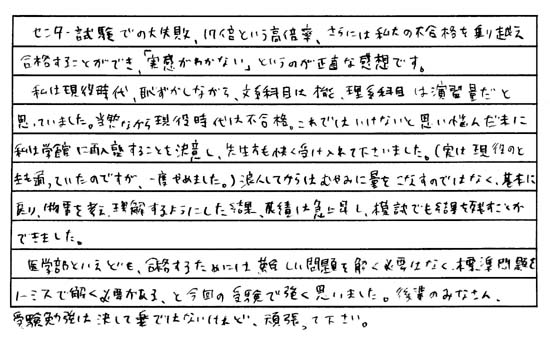 センター試験での大失敗、17倍という高倍率、さらには私大の不合格を乗り越え
合格することができ、「実感がわかない」というのが正直な感想です。
私は現役時代、恥ずかしながら、文系科目は 理系科目は演習量だと
思っていました。当然ながら現役時代は不合格。これではいけないと思い悩んだ末に
私は学館に再入塾することを決意し、先生方も快く受け入れて下さいました。(実は現役のと
きも通っていたのですが、一度やめました。)浪人してからはむやみに量をこなすのではなく、基本に
戻り、物事を考え、理解するようにした結果、成績は急上昇し、模試でも結果を残すことが
できました。
医学部といえども、合格するためには難しい問題を解く必要はなく、標準問題を
ノーミスで解く必要がある、と今回の受験で強く思いました。後輩のみなさん、
受験勉強は決して楽ではないけれど、頑張って下さい。